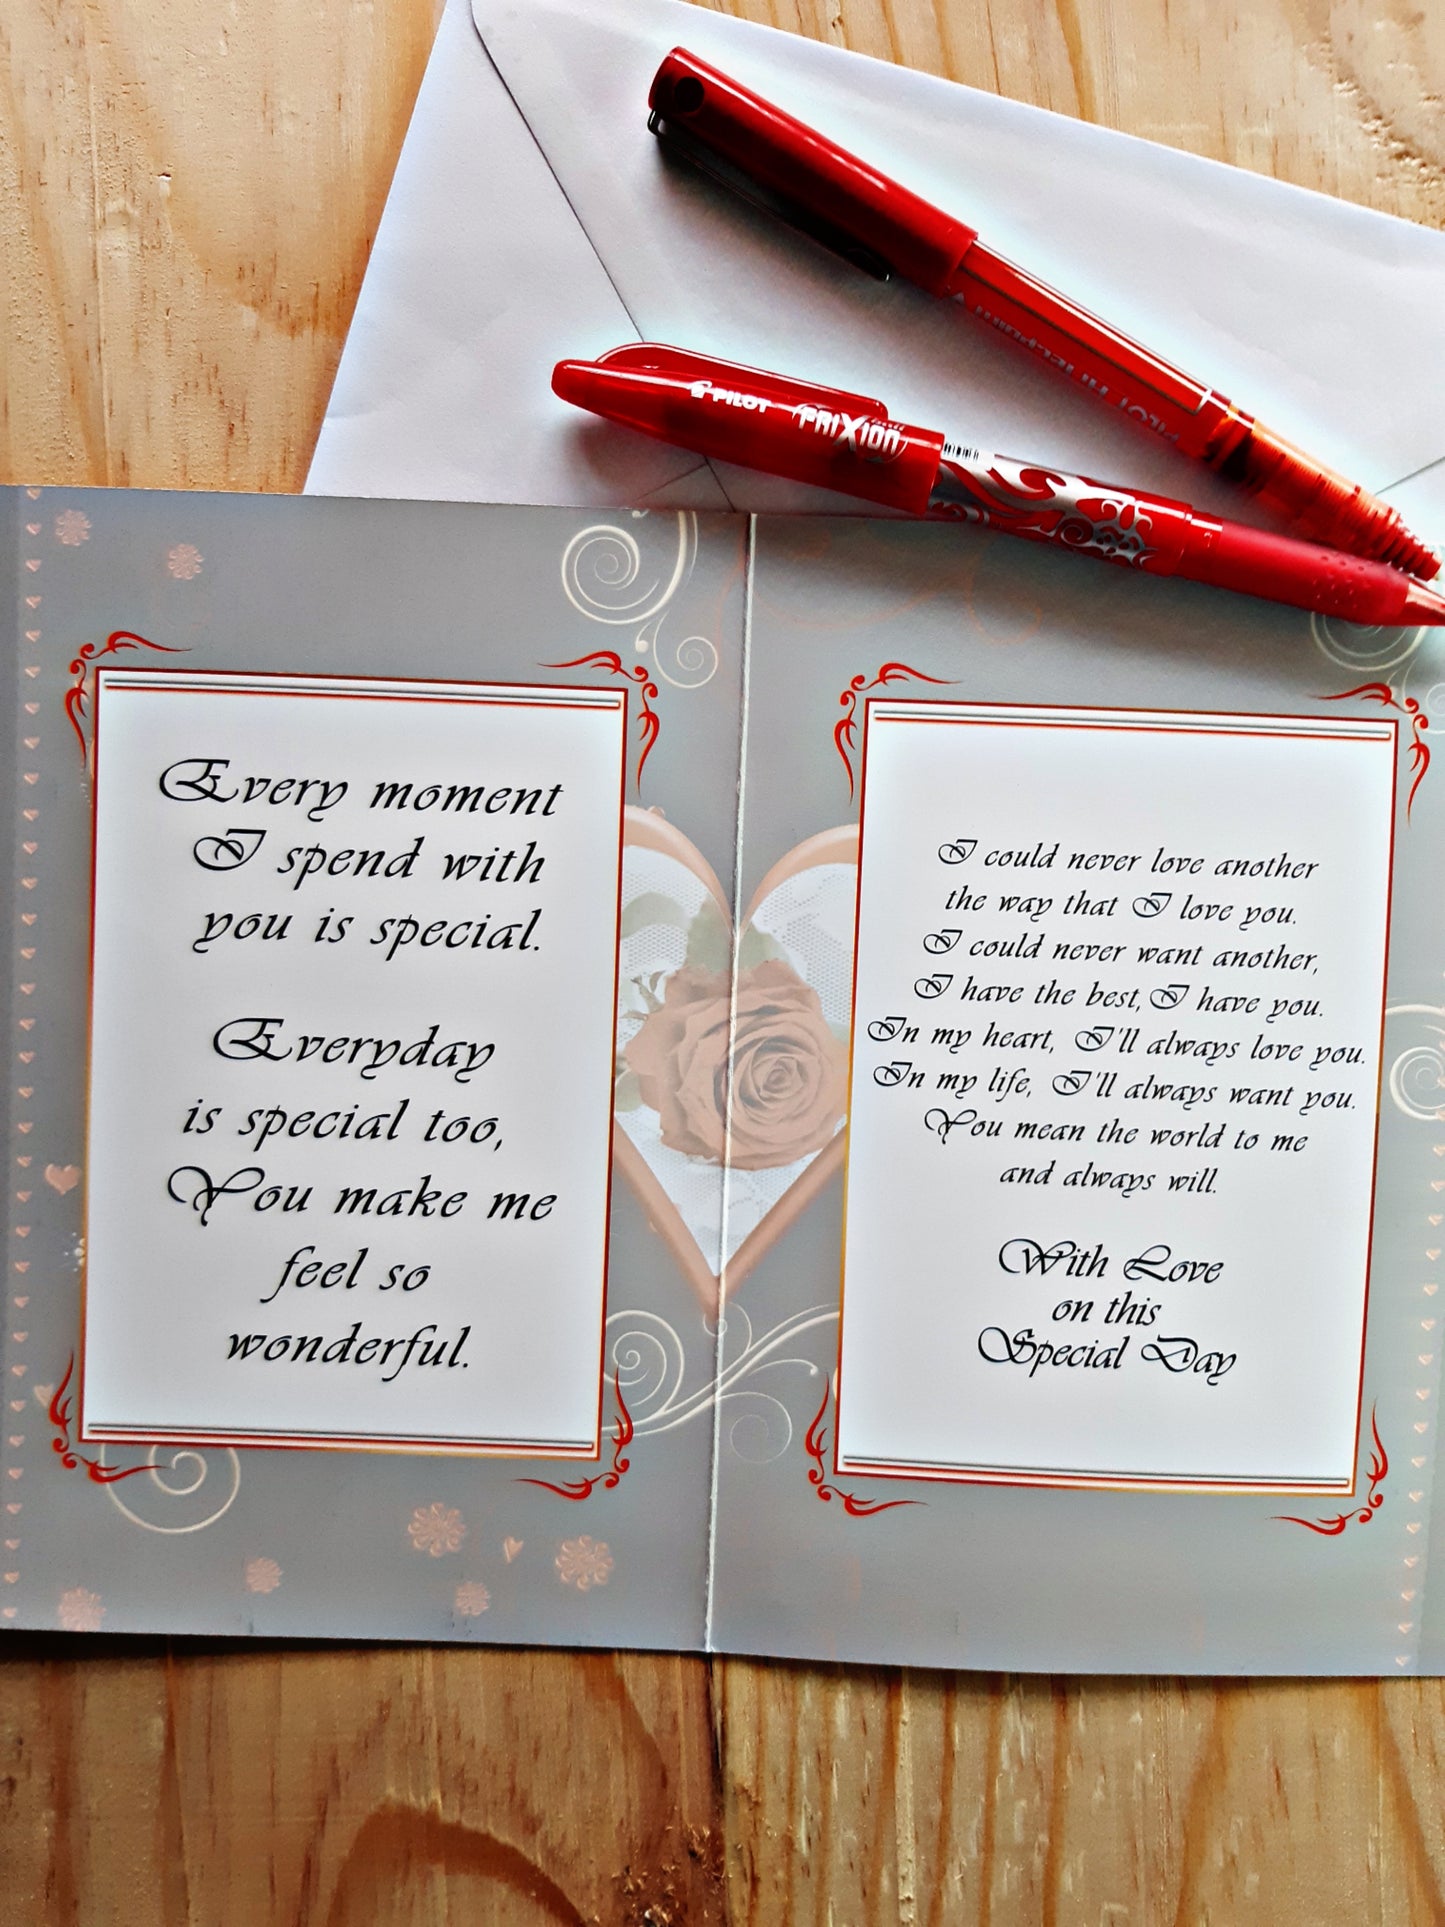 PILOT HI-TECPOINT V
PILOT FRIXION ball
Every moment
I spend with
you is special.
Everyday
is special too,
You make me
feel so
wonderful.
I could never love another
the way that I love you.
I could never want another,
I have the best, I have you.
In my heart, I'll always love you.
In my life, I'll always want you.
You mean the world to me
and always will.
With Love
on this
Special Day